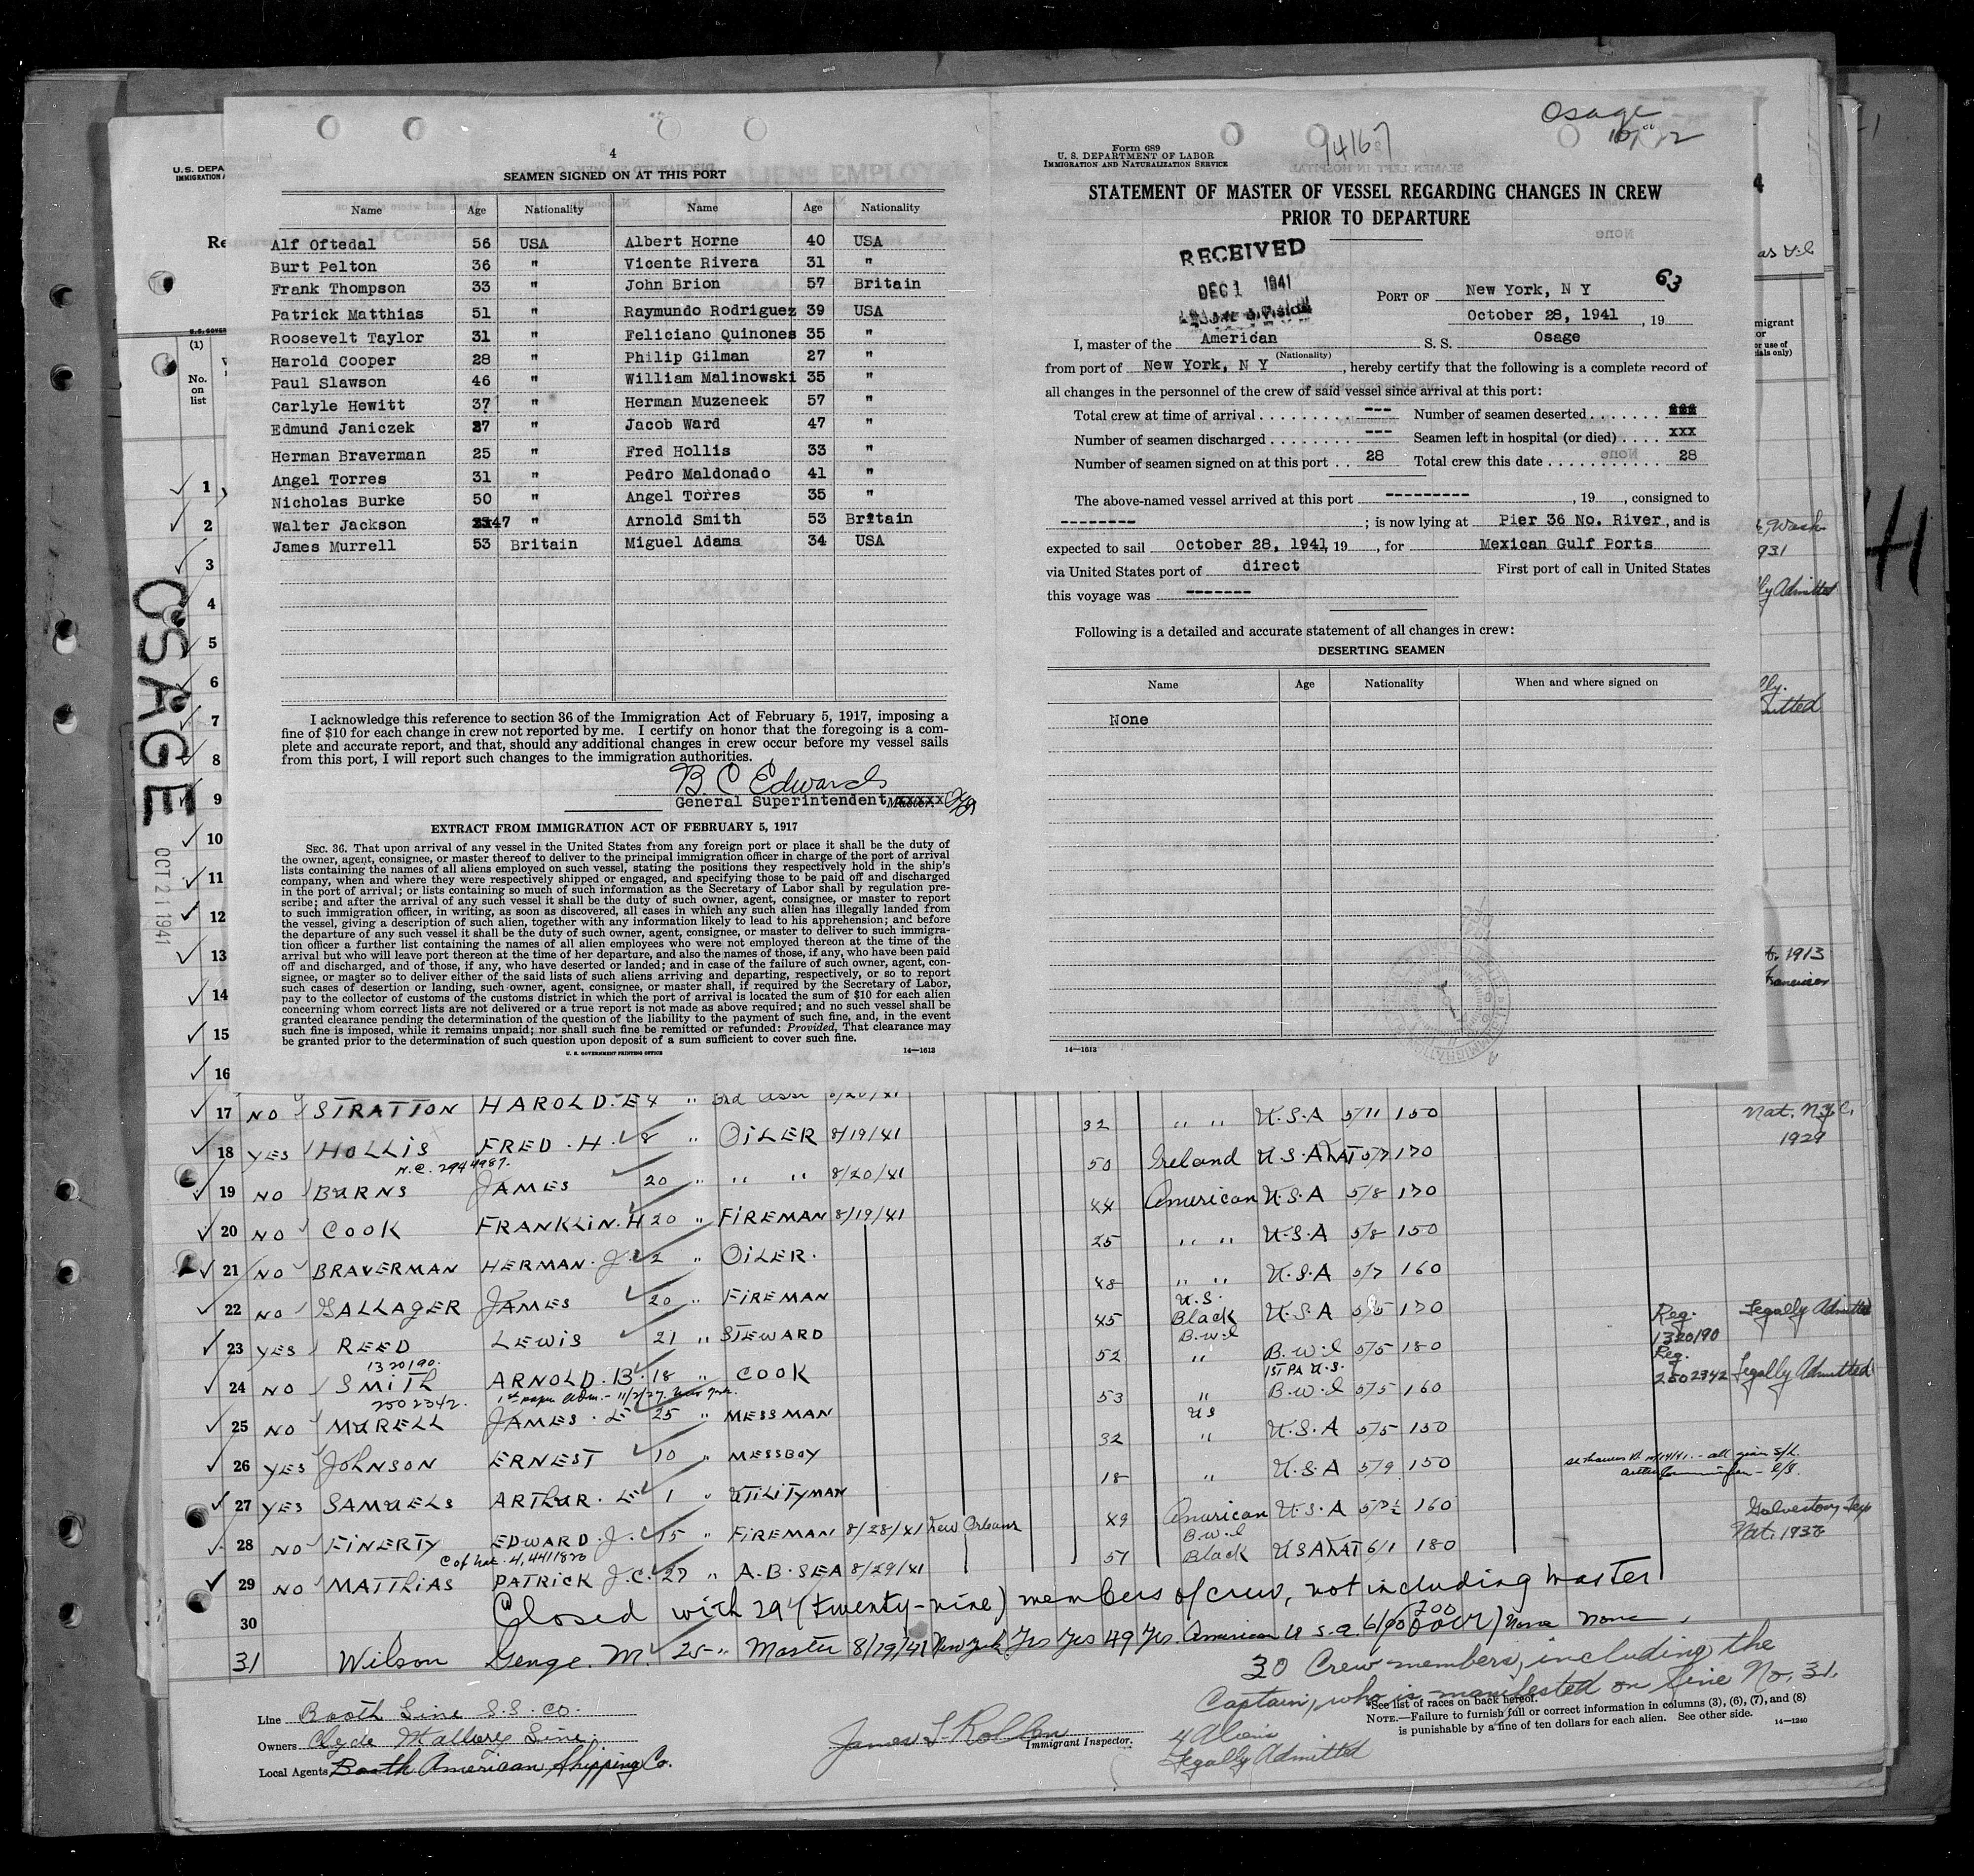 Osage
94167
4
SEAMEN SIGNED ON AT THIS PORT
Name Age Nationality Name Age Nationality
Alf Oftedal 56 USA Albert Horne 40 USA
Burt Pelton 36 " Vicente Rivera 31 "
Frank Thompson 33 " John Brion 57 Britain
Patrick Matthias 51 " Raymundo Rodriguez 39 USA
Roosevelt Taylor 31 " Feliciano Quinones 35 "
Harold Cooper 28 " Philip Gilman 27 "
Paul Slawson 46 " William Malinowski 35 "
Carlyle Hewitt 37 " Herman Muzeneek 57 "
Edmund Janiczek 37 " Jacob Ward 47 "
Herman Braverman 25 " Fred Hollis 33 "
Angel Torres 31 " Pedro Maldonado 41 "
Nicholas Burke 50 " Angel Torres 35 "
Walter Jackson 47 " Arnold Smith 53 Britain
James Murrell 53 Britain Miguel Adams 34 USA
I acknowledge this reference to section 36 of the Immigration Act of February 5, 1917, imposing a
fine of $10 for each change in crew not reported by me. I certify on honor that the foregoing is a com-
plete and accurate report, and that, should any additional changes in crew occur before my vessel sails
from this port, I will report such changes to the immigration authorities.
B. C Edwards
General Superintendent Master.
EXTRACT FROM IMMIGRATION ACT OF FEBRUARY 5, 1917
SEC. 36. That upon arrival of any vessel in the United States from any foreign port or place it shall be the duty of
the owner, agent, consignee, or master thereof to deliver to the principal immigration officer in charge of the port of arrival
lists containing the names of all aliens employed on such vessel, stating the positions they respectively hold in the ship's
company, when and where they were respectively shipped or engaged, and specifying those to be paid off and discharged
in the port of arrival; or lists containing so much of such information as the Secretary of Labor shall by regulation pre-
scribe; and after the arrival of any such vessel it shall be the duty of such owner, agent, consignee, or master to report
to such immigration officer, in writing, as soon as discovered, all cases in which any such alien has illegally landed from
the vessel, giving a description of such alien, together with any information likely to lead to his apprehension; and before
the departure of any such vessel it shall be the duty of such owner, agent, consignee, or master to deliver to such immigra-
tion officer a further list containing the names of all alien employees who were not employed thereon at the time of the
arrival but who will leave port thereon at the time of her departure, and also the names of those, if any, who have been paid
off and discharged, and of those, if any, who have deserted or landed; and in case of the failure of such owner, agent, con-
signee, or master so to deliver either of the said lists of such aliens arriving and departing, respectively, or so to report
such cases of desertion or landing, such owner, agent, consignee, or master shall, if required by the Secretary of Labor,
pay to the collector of customs of the customs district in which the port of arrival is located the sum of $10 for each alien
concerning whom correct lists are not delivered or a true report is not made as above required; and no such vessel shall be
granted clearance pending the determination of the question of the liability to the payment of such fine, and, in the event
such fine is imposed, while it remains unpaid; nor shall such fine be remitted or refunded: Provided, That clearance may
be granted prior to the determination of such question upon deposit of a sum sufficient to cover such fine.
U. S. GOVERNMENT PRINTING OFFICE 14—1613
Form 689
U. S. DEPARTMENT OF LABOR
IMMIGRATION AND NATURALIZATION SERVICE
STATEMENT OF MASTER OF VESSEL REGARDING CHANGES IN CREW
PRIOR TO DEPARTURE
RECEIVED
DEC 1 1941
63
PORT OF New York, N Y
October 28, 1941, 19
I, master of the American S. S. Osage
(Nationality)
from port of New York, N Y, hereby certify that the following is a complete record of
all changes in the personnel of the crew of said vessel since arrival at this port:
Total crew at time of arrival --- Number of seamen deserted xxx
Number of seamen discharged --- Seamen left in hospital (or died) xxx
Number of seamen signed on at this port 28 Total crew this date 28
The above-named vessel arrived at this port ---------, 19, consigned to
--------; is now lying at Pier 36 No. River, and is
expected to sail October 28, 1941, 19, for Mexican Gulf Ports
via United States port of direct First port of call in United States
this voyage was -------
Following is a detailed and accurate statement of all changes in crew:
DESERTING SEAMEN
Name Age Nationality When and where signed on
None
14—1613
U. S. DEPA
IMMIGRATION A
Re
(1)
No.
on
list
1
2
3
4
5
6
7
8
9
10
11
12
13
14
15
16
OSAGE
OCT 21 1941
17 NO STRATTON HAROLD. E 4 " 3rd Asst 8/20/41 32 " " U.S.A 5/11 150 Nat. N.Y.C.
1929
18 YES HOLLIS FRED. H. 8 " OILER 8/19/41 50 Ireland U.S.A NAT 5/7 170
N.C. 2944987.
19 NO BURNS JAMES 20 " " " 8/20/41 44 American U.S.A 5/8 170
20 NO COOK FRANKLIN. H 20 " FIREMAN 8/19/41 25 " " U.S.A 5/8 150
21 NO BRAVERMAN HERMAN. J. 2 " OILER. 48 " " U.S.A 5/7 160
22 NO GALLAGER JAMES 20 " FIREMAN 45 U.S. Black U.S.A 5/5 170 Reg. 1320190 Legally Admitted
23 YES REED LEWIS 21 " STEWARD 52 B.W.I " B.W.I 5/5 180 Reg. 2502342 Legally Admitted
1320190.
24 NO SMITH ARNOLD. B. 18 " COOK 53 " 1ST PA U.S. B.W.I 5/5 160
2502342.
25 NO MURELL JAMES. E 25 " MESSMAN 32 US " U.S.A 5/5 150
26 YES JOHNSON ERNEST 10 " MESSBOY 18 " U.S.A 5/9 150
27 YES SAMUELS ARTHUR. E 1 " UTILITYMAN 49 American U.S.A 5/7½ 160 Galveston, Tex
Nat. 1938
28 NO FINERTY EDWARD. J. 15 " FIREMAN 8/28/41 New Orleans 57 B.W.I Black USA NAT 6/1 180
C of Nat. 4,441820
29 NO MATTHIAS PATRICK J.C. 27 " A.B. SEA 8/29/41
30 Closed with 29 (twenty-nine) members of crew, not including master
31 Wilson George. M. 25 " Master 8/19/41 New York Yes Yes 49 Yes American U.S.a. 6/00 200 None None
30 Crew members, including the
Captain, who is manifested on line No. 31.
4 Aliens
Legally Admitted
Line Booth Line S.S. Co.
Owners Clyde Mallory Line.
Local Agents Booth American Shipping Co.
Immigrant Inspector.
*See list of races on back hereof.
NOTE.—Failure to furnish full or correct information in columns (3), (6), (7), and (8)
is punishable by a fine of ten dollars for each alien. See other side. 14—1240